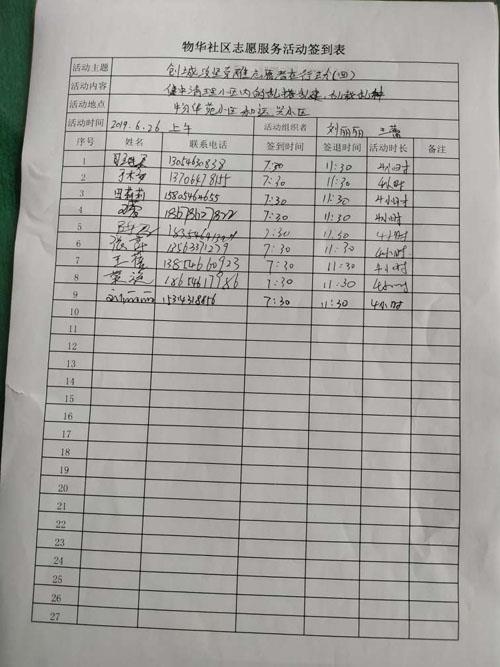 物华社区志愿服务活动签到表
活动主题 创城攻坚 志愿者在行动(四)
活动内容 集中清理小区内的乱搭乱建、乱栽乱种
活动地点 物华苑小区 和运兴小区
活动时间 2019.6.26 上午 活动组织者 刘丽丽 王蕾
序号 姓名 联系电话 签到时间 签退时间 活动时长 备注
1 7:30 11:30 4小时
2 13706478155 7:30 11:30 4小时
3 田莉莉 15805464655 7:30 11:30 4小时
4 7:30 11:30 4小时
5 7:30 11:30 4小时
6 7:30 11:30 4小时
7 13854660923 7:30 11:30 4小时
8 18654617986 7:30 11:30 4小时
9 15314318856 7:30 11:30 4小时
10
11
12
13
14
15
16
17
18
19
20
21
22
23
24
25
26
27